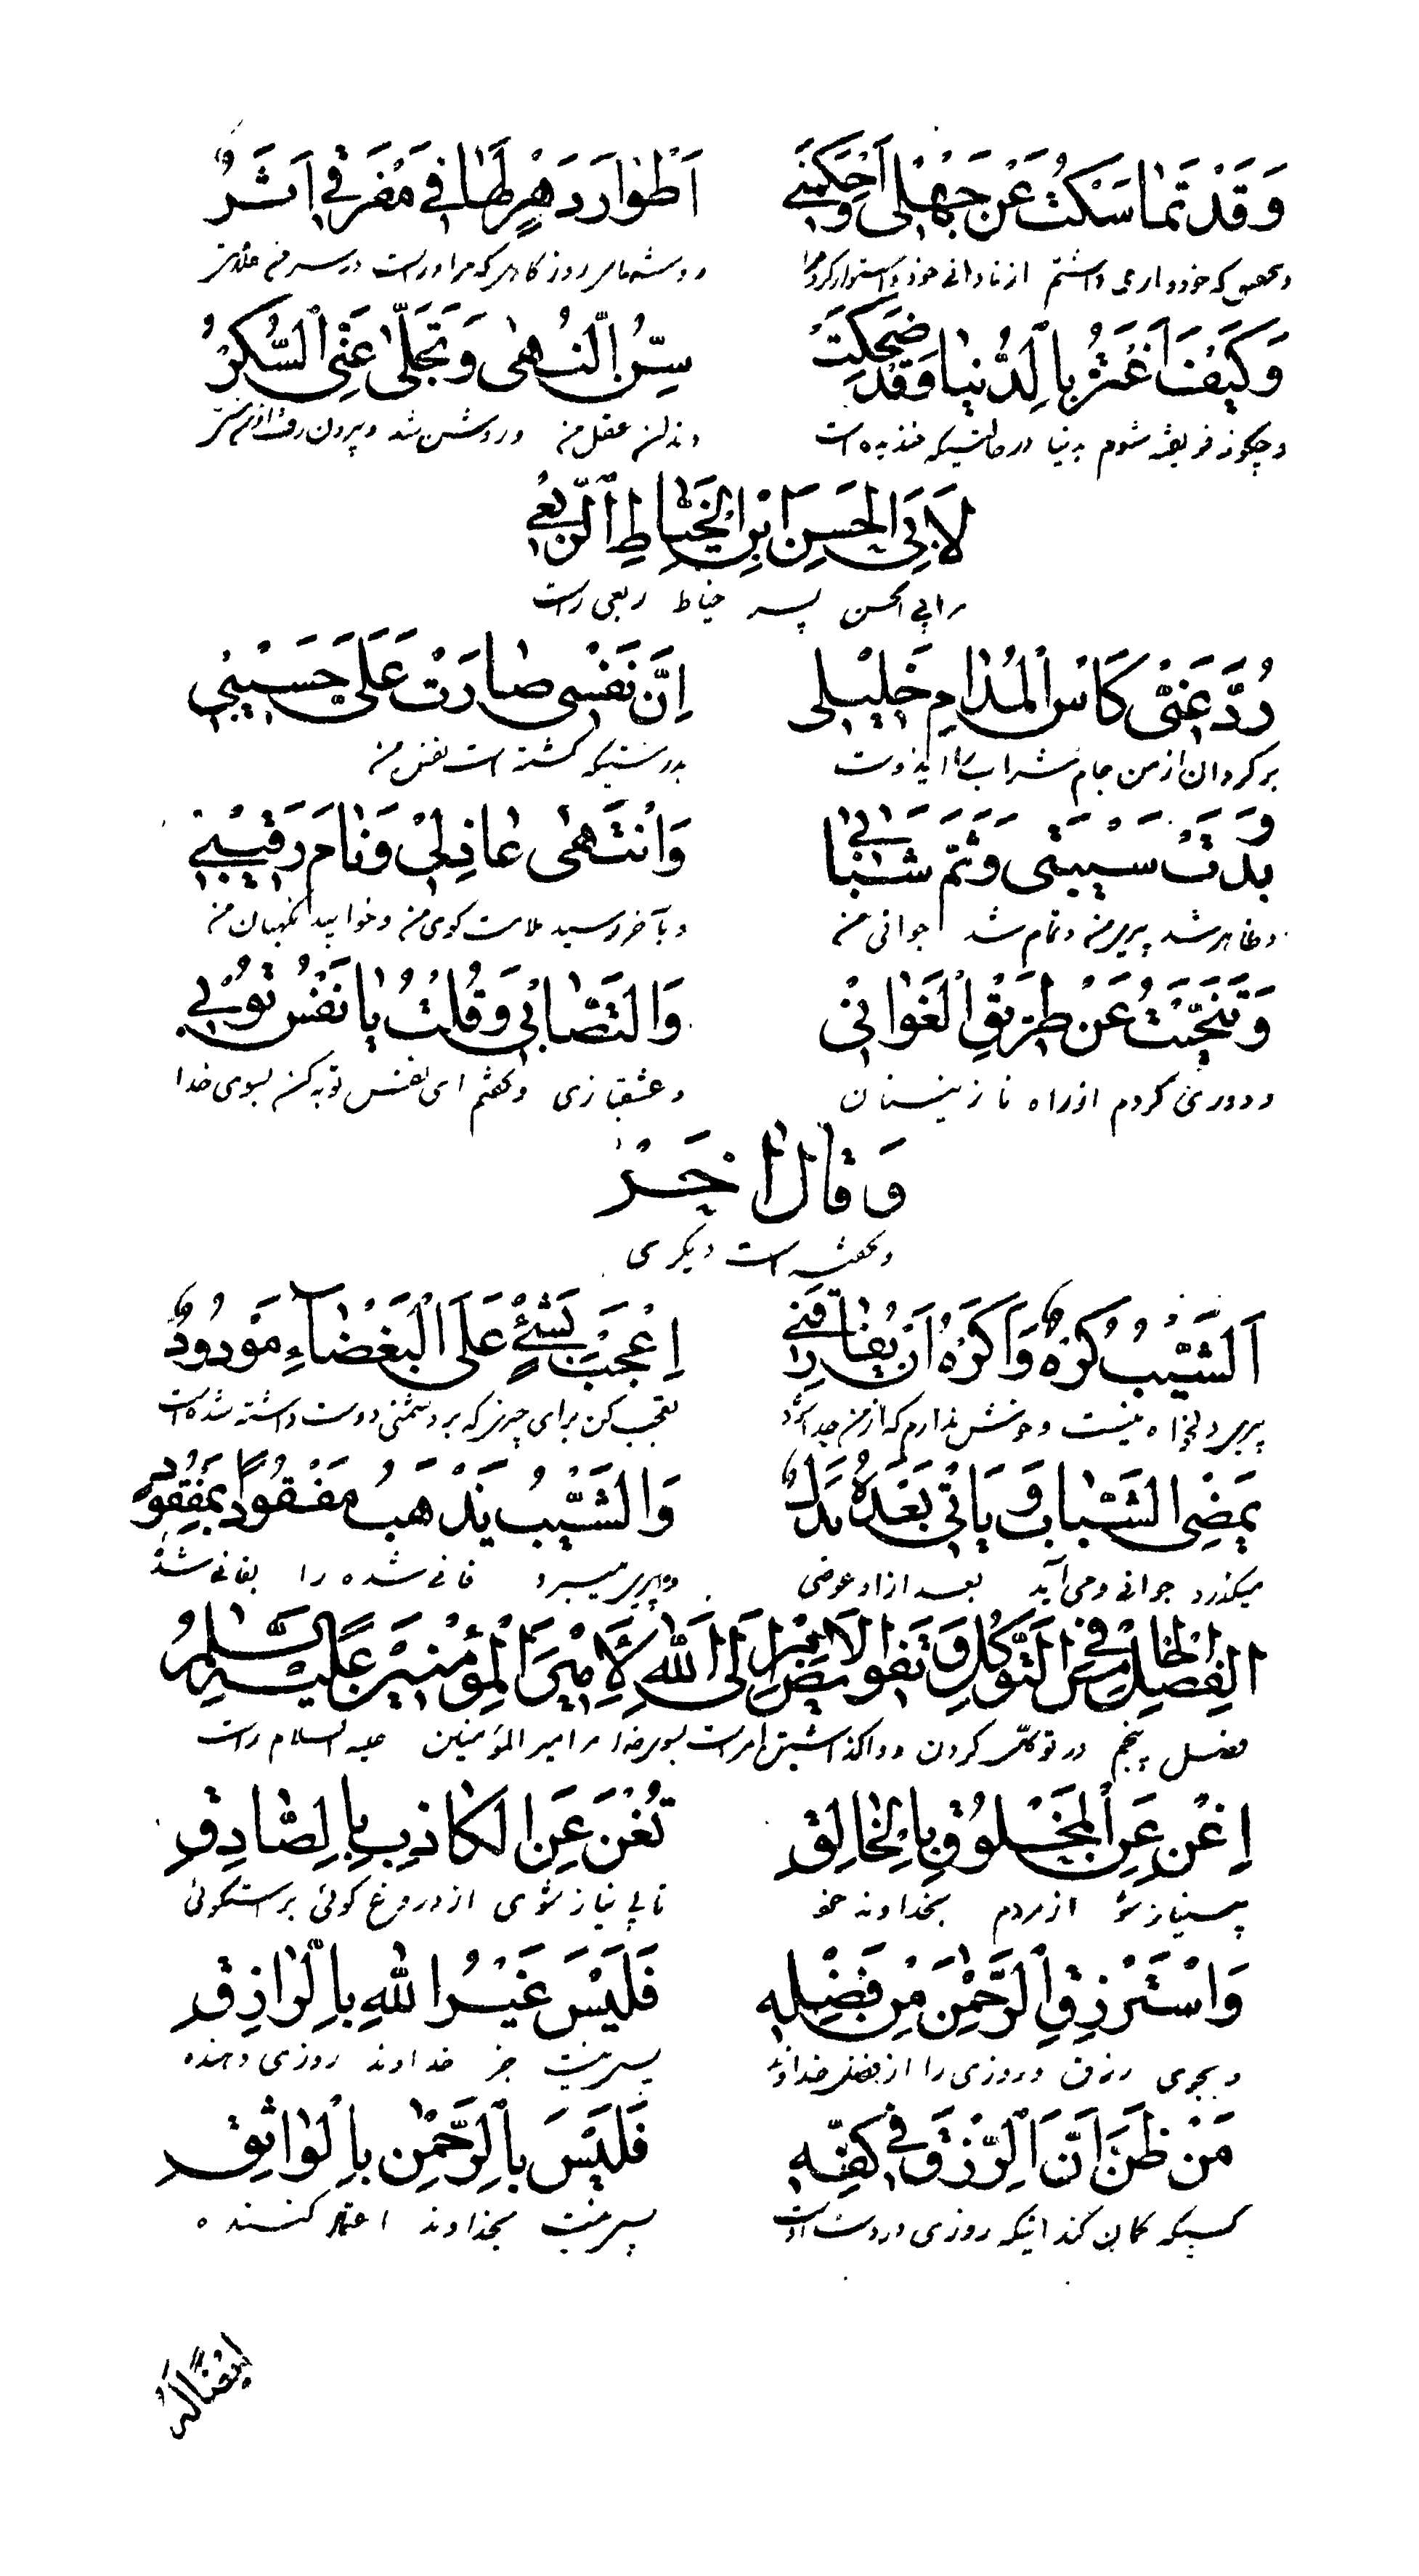 وَقَدْ تَمٰاسَكْتُ عَنْ جَهْلٰى وَاَحْكَمَنِے اَطْوٰارَ دَهْرٍ لَهٰا فِے مَفْرَقِے اَثَرُ
كه خوددارى داشتم از نادانے خود و استوار كرد مرا
وَكَيْفَ اَغْتَرُّ بِالدُّنْيٰا وَقَدْ ضَحِكَتْ سِنُّ النُّهٰى وَتَجَلّٰى عَنِّى السُّكْرُ
و چكونه فريفته شوم بدنيا در حالتيكه خنديده است دندان عقل من و روشن شد و بيرون رفت از من
لاَبِى الحَسِنَ ابْنِ الخَيّٰاطِ الرَّبَعِے
مر ابے الحسن پسر خياط ربعى راست
رُدَّ عَنّٰى كَاْسَ الْمُدٰامِ خَلِيْلٰى اِنَّ نَفْسٰى صٰارَتْ عَلَىَّ حَسِيْبٰى
بر كردان از من جام شراب را ايدوست بدرستيكه كشته است نفس من
وَبَدَتْ شَيْبَتٰى وَتَمَّ شَبٰابٰى وَانْتَهٰى عٰاذِلٰى وَنٰامَ رَقِيْبِے
و ظاهر شد پيرى من و تمام شد جوانى من و بآخر رسيد ملامت كوى من و خوابيد نكهبان من
وَتَنَحَّيْتُ عَنْ طَرِيْقِ الْغَوٰانٰى وَالتَّصٰابٰى وَقُلْتُ يٰا نَفْسُ تُوْبٰى
و دورى كردم از راه نازنينان و عشقبازى و كفتم اى نفس توبه كن بسوى خدا
وَقٰالَ اٰخَرُ
و كفته است ديكرى
اَلشَّيْبُ كُرْهٌ وَاَكْرَهُ اَنْ يُفٰارِقَنِے اِعْجَبْ بِشَئٍْ عَلَى الْبَغْضٰآءِ مَوْدُودٌ
پيرى دلخواه نيست و خوش ندارم كه از من جدا شود تعجب كن براى چيزى كه بر دشمنى دوست داشته شده است
يَمْضِى الشَّبٰابُ وَيَاْتٰى بَعْدَهُ بَدَلٌ وَالشَّيْبُ يَذْهَبُ مَفْقُودًا بِمَفْقُودٍ
ميكذرد جوانے و مى آيد بعد از او عوضى و پيرى ميبرد فانے شده را بفانے شده
الفَصْلُ الخٰامِسُ فِے التَّوَكُّلِ وَتَفْوِيْضِ الاَمْرِ اِلَى اللّٰهِ لِاَمِيْرِ الْمُؤْمِنِيْنَ عَلَيْهِ السَّلٰامُ
فصل پنجم در توكل كردن و واكذاشتن امر است بسوى خدا مر امير المؤمنين عليه السلام راست
اِغْنَ عَنِ الْمَخْلُوْقِ بِالْخٰالِقِ تُغْنَ عَنِ الكٰاذِبِ بِالصّٰادِقِ
بينياز شو از مردم بخداوند خود تا بے نياز شوى از دروغ كوئى براستكوئى
وَاسْتَرْزِقِ الرَّحْمٰنَ مِنْ فَضْلِهِ فَلَيْسَ غَيْرُ اللّٰهِ بِالرّٰازِقِ
و بجوى رزق و روزى را از فضل خداوند پس نيست جز خداوند روزى دهنده
مَنْ ظَنَّ اَنَّ الرِّزْقَ فِے كَفِّهِ فَلَيْسَ بِالرَّحْمٰنِ بِالْوٰاثِقِ
كسيكه كمان كند اينكه روزى در دست اوست پس نيست بخداوند اعتماد كننده
اَيْضًا لَهُ